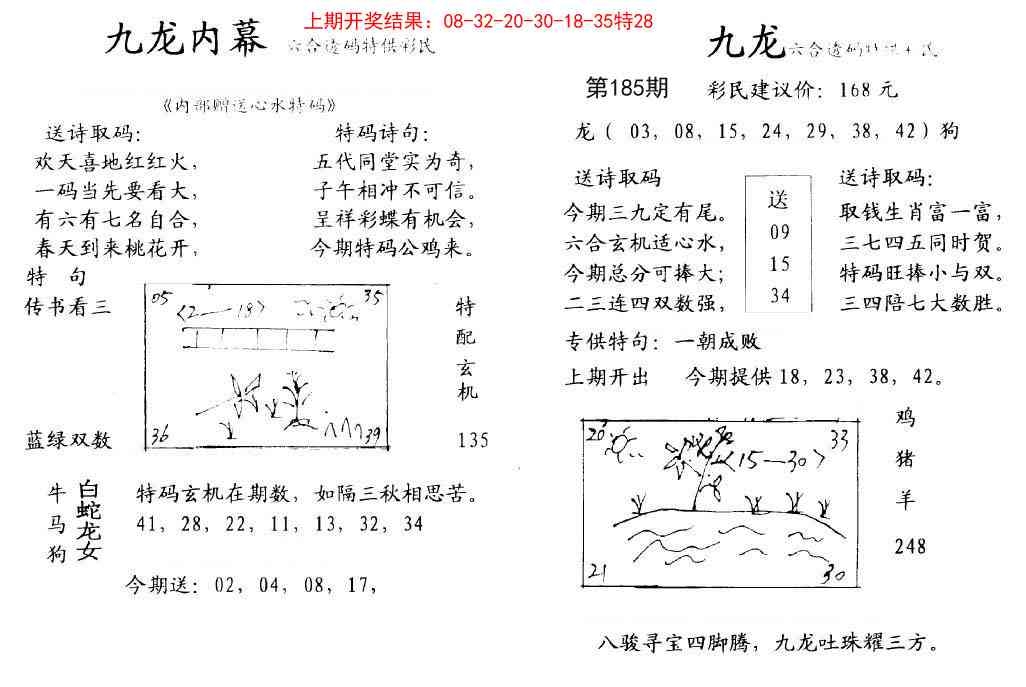 上期开奖结果：08-32-20-30-18-35特28
九龙内幕 六合透码特供彩民
《内部赠送心水特码》
送诗取码：
欢天喜地红红火，
一码当先要看大，
有六有七名自合，
春天到来桃花开，
特码诗句：
五代同堂实为奇，
子午相冲不可信。
呈祥彩蝶有机会，
今期特码公鸡来。
特 句
传书看三
蓝绿双数
05
35
<2—18>
36
39
特配玄机
135
牛马狗
白蛇龙女
特码玄机在期数，如隔三秋相思苦。
41，28，22，11，13，32，34
今期送：02，04，08，17，
九龙六合透码特供
第185期 彩民建议价：168 元
龙（ 03，08，15，24，29，38，42）狗
送诗取码
今期三九定有尾。
六合玄机适心水，
今期总分可捧大；
二三连四双数强，
送
09
15
34
送诗取码：
取钱生肖富一富，
三七四五同时贺。
特码旺捧小与双。
三四陪七大数胜。
专供特句：一朝成败
上期开出 今期提供 18，23，38，42。
20
33
<15—30>
21
30
鸡
猪
羊
248
八骏寻宝四脚腾，九龙吐珠耀三方。